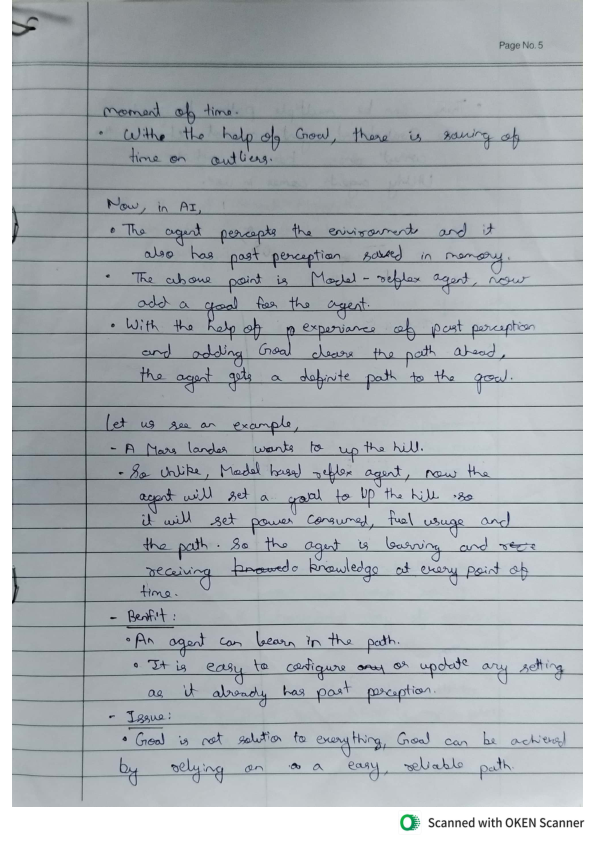 Page No. 5
moment of time.
• Withe the help of Goal, there is saving of
time on outliers.
Now, in AI,
• The agent percepts the environment and it
also has past perception saved in memory.
• The above point is Model-reflex agent, now
add a goal for the agent.
• With the help of experiance of past perception
and adding Goal clears the path ahead,
the agent gets a definite path to the goal.
Let us see an example,
- A Mars lander wants to up the hill.
- So Unlike, Model based reflex agent, now the
agent will set a goal to UP the hill so
it will set power consumed, fuel usuge and
the path. So the agent is learning and
receiving knowledge at every point of
time.
- Benfit:
• An agent can learn in the path.
• It is easy to configure or update any setting
as it already has past perception.
- Issue:
• Goal is not solution to everything, Goal can be achieved
by relying on a easy, reliable path.
Scanned with OKEN Scanner